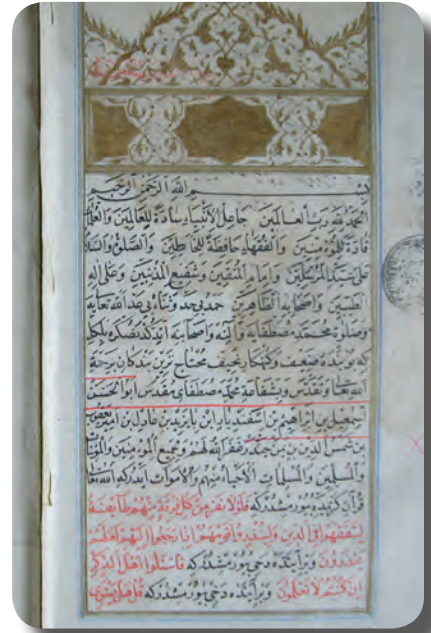 بسم الله الرحمن الرحيم
الحمد لله رب العالمين جاعل الأنبياء سادة للعالمين والعلماء
قادة للمؤمنين والفقهاء حافظة للغافلين والصلوة والسلام
على سيد المرسلين وامام المتقين وشفيع المذنبين وعلى اله
الطيبين واصحابه الطاهرين حمد بى حد وثناء بى عد الله تعاليه
وصلوة محمد مصطفايه وآلنه واصحابنه ايتدكدنصكره بلكل
كه بو بنده ضعيف وكنهكار نحيف محتاج ترين بندكان برحمة
الله تعالى وتقدس وبشفاعة محمد مصطفاى مقدس ابو الحسن
اسمعيل بن ابراهيم بن اسفنديار ابن بايزيد بن عادل بن امير يعقوب
بن شمس الدين بن غفر الله لهم ولجميع المؤمنين والمؤمنات
والمسلمين والمسلمات الاحياء منهم والاموات ايدركه الله تعالى
قرآن كريمنده بيورمشدركه فلولا نفر من كل فرقة منهم طائفة
ليتفقهوا فى الدين ولينذروا قومهم اذا رجعوا اليهم لعلهم
يحذرون وبر آيتده دخى بيورمشدركه فاسئلوا اهل الذكر
ان كنتم لا تعلمون وبر آيتده دخى بيورمشدركه قل هل يستوى